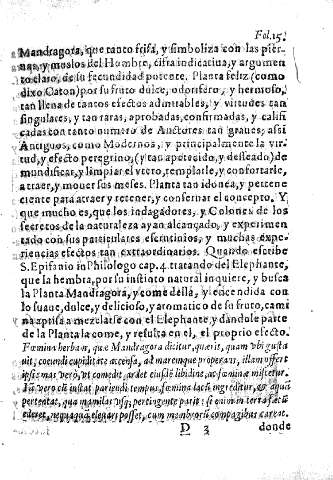 Fol. 15.
Mandragora, que tanto frisa, y simboliza con las pier-
nas, y moslos del Hombre, cifra indicativa, y argumen
to claro, de su fecundidad potente. Planta feliz (como
dixo Caton) por su fruto dulce, odorifero, y hermoso,
tan llena de tantos efectos admirables, y virtudes tan
singulares, y tan raras, aprobadas, confirmadas, y califi
cadas con tanto numero de Auctores tan graves; assi
Antiguos, como Modernos, y principalmente la vir-
tud, y efecto peregrino, (y tan apetecido, y desseado) de
mundificar, y limpiar el vtero, templarle, y confortarle,
atraer, y mover sus meses. Planta tan idonea, y pertene
ciente para atraer y retener, y conservar el concepto. Y
que mucho es, que los indagadores, y Colones de los
secretos de la naturaleza ayan alcançado, y experimen
tado con sus particulares escrutinios, y muchas expe-
riencias efectos tan extraordinarios. Quando escribe
S. Epifanio in Philologo cap. 4. tratando del Elephante,
que la hembra, por su instinto natural inquiere, y busca
la Planta Mandragora, y come della, y encendida con
lo suave, dulce, y delicioso, y aromatico de su fruto, cami
na aprisa a mezclarse con el Elephante, y dandole parte
de la Planta la come, y resulta en el, el proprio efecto.
Fœmina herbam, quæ Mandragora dicitur, quærit, quam vbi gusta
uit, cocundi cupiditate accensa, ad maremque properans, illam offert
ipse mas verò, vt comedit, ardet eiusdē libidine, ac fœminæ miscetur.
Tū verò cū instat pariendi tempus, fœmina lacū ingreditur, &
pertentat, quo mamillas vsq; pertingente parit: si enim in terra fœtū
ederet, nequaquā eleuari posset, cum membrorū compagibus careat.
D 3 donde